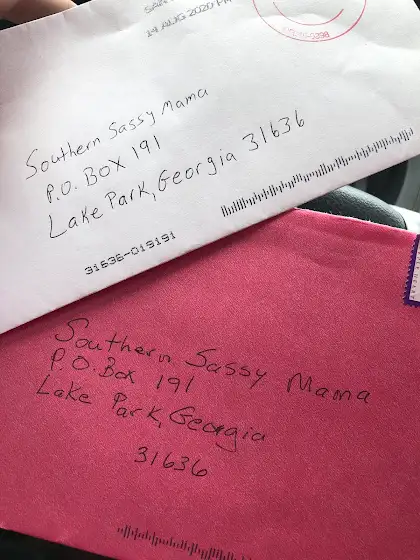 14 AUG 2020 PM
Southern Sassy Mama
P.O. Box 191
Lake Park, Georgia 31636
31636-019191
Southern Sassy Mama
P.O. Box 191
Lake Park, Georgia
31636